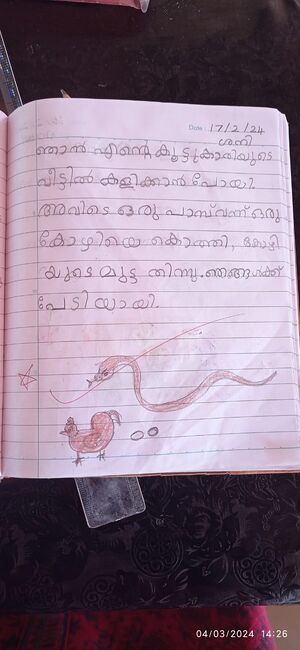 Date: 17/2/24
ശനി
ഞാൻ എന്റെ കൂട്ടുകാരിയുടെ
വീട്ടിൽ കളിക്കാൻ പോയി.
അവിടെ ഒരു പാമ്പ് വന്ന് ഒരു
കോഴിയെ കൊത്തി, കോഴി
യുടെ മുട്ട തിന്നു. ഞങ്ങൾക്ക്
പേടിയായി.
04/03/2024 14:26